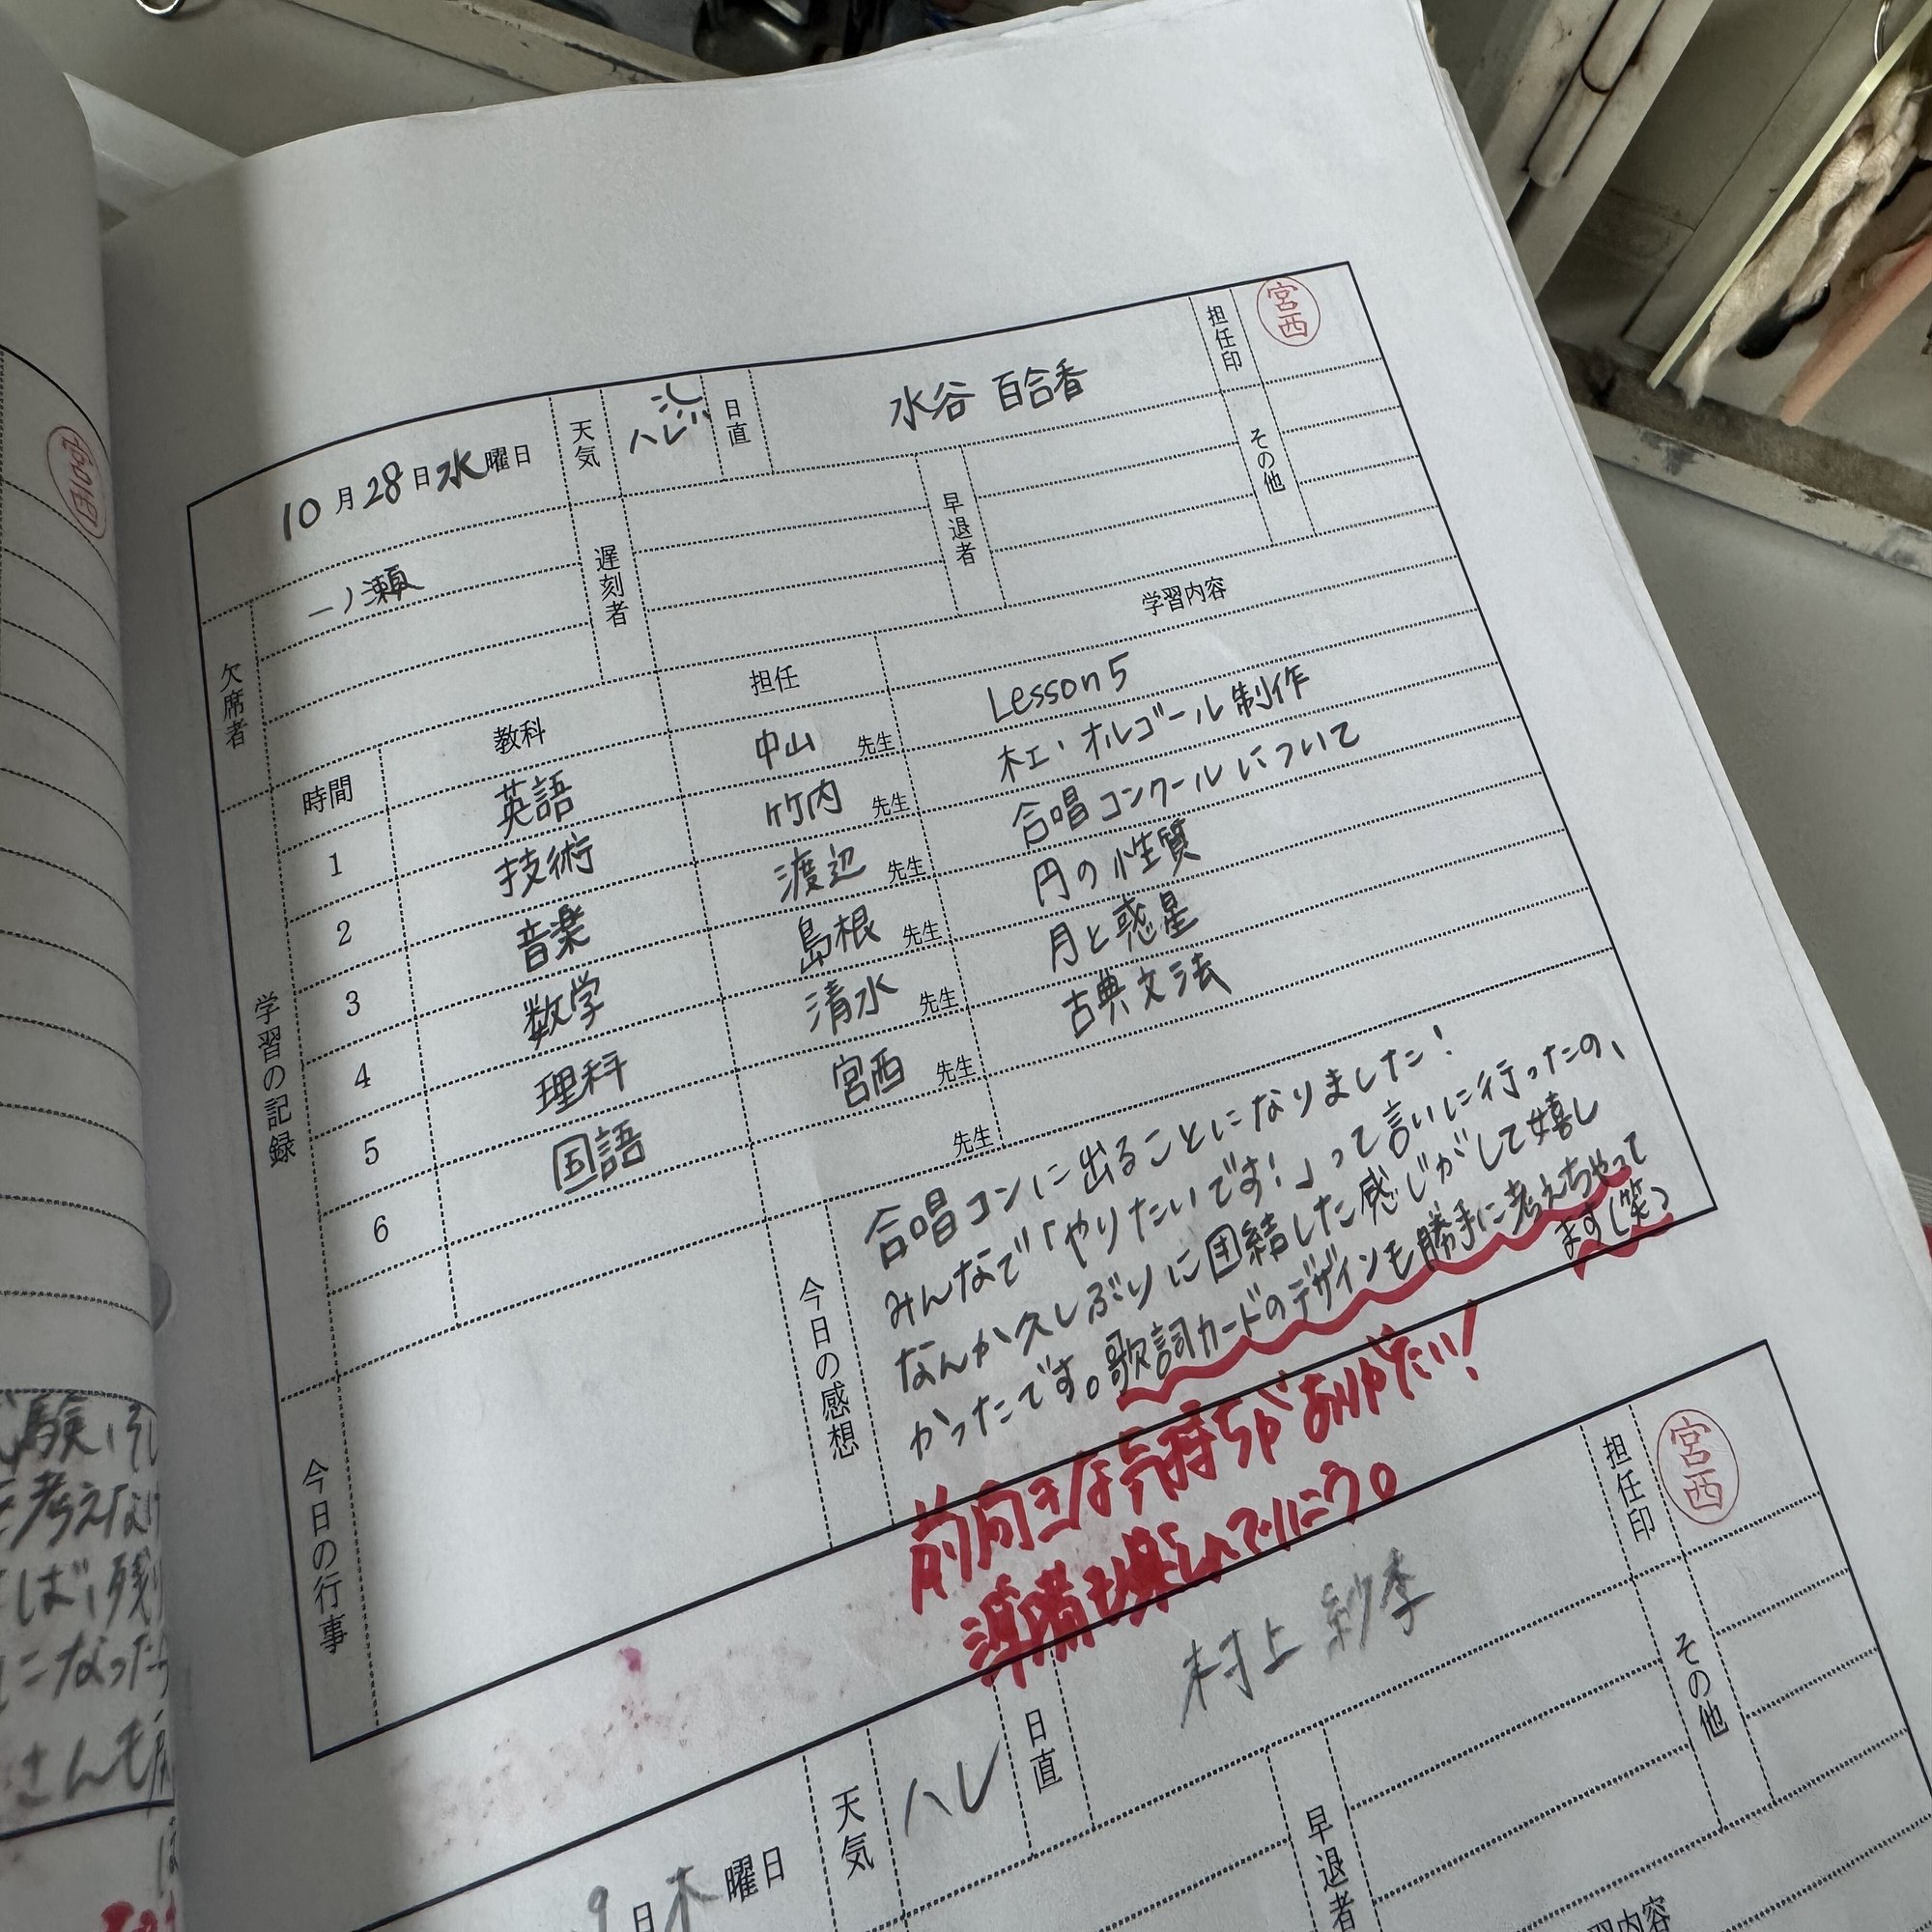 10月28日水曜日
天気
ハレ
日直
水谷 百合香
担任印
宮西
欠席者
一ノ瀬
遅刻者
早退者
その他
学習の記録
時間 教科 担任 学習内容
1 英語 中山 先生 Lesson5
2 技術 竹内 先生 木工・オルゴール制作
3 音楽 渡辺 先生 合唱コンクールについて
4 数学 島根 先生 円の性質
5 理科 清水 先生 月と惑星
6 国語 宮西 先生 古典文法
先生
今日の行事
今日の感想
合唱コンに出ることになりました!
みんなで「やりたいです!」って言いに行ったの、
なんか久しぶりに団結した感じがして嬉し
かったです。歌詞カードのデザインも勝手に考えちゃって
ます(笑)
前向きな気持ちがありがたい!
準備も楽しんでいこう。
9日木曜日
天気
ハレ
日直
村上 紗季
担任印
宮西
早退者
その他
習内容
験、そし
考えな
ば、残
になった
さんも